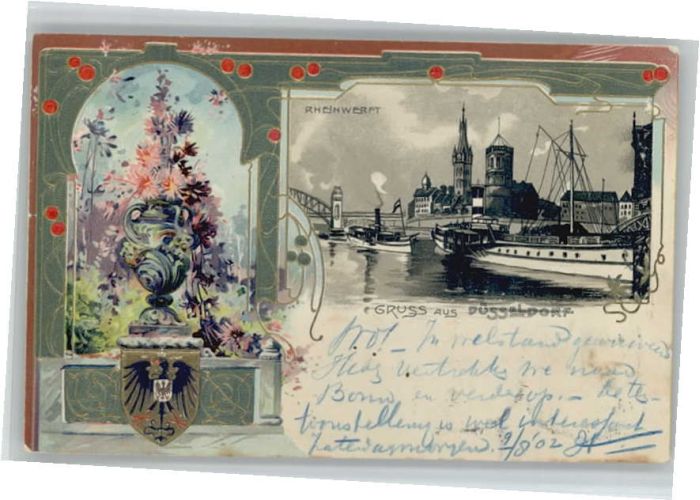 RHEINWERFT
GRUSS AUS DÜSSELDORF
In welstand
Heden vertrekken we naar
Bonn en verderop. — de te-
toonstelling is wel interessant
Zaterdagmorgen. 9/8 '02